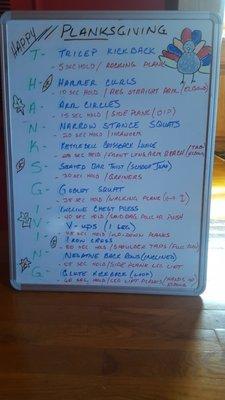 HAPPY PLANKSGIVING
T- TRICEP KICKBACK
- 5 SEC HOLD / ROCKING PLANK
H- HAMMER CURLS
- 10 SEC HOLD / ALT STRAIGHT ARM / (ELBOW)
A- ARM CIRCLES
- 15 SEC HOLD / SIDE PLANK / (DIP)
N- NARROW STANCE SQUATS
- 20 SEC HOLD /
K- KETTLEBELL BACKWARD LUNGE
- 25 SEC HOLD / FRONT LONG ARM REACH /
S- SEATED BAR TWIST /
- 30 SEC HOLD / GRINDERS
G- GOBLET SQUAT
- 35 SEC HOLD / WALKING PLANK
I- INCLINE CHEST PRESS
- 40 SEC HOLD / SANDBAG PULL OR PUSH
V- V-UPS (1 LEG)
- 45 SEC HOLD / UP-DOWN PLANKS
I- IRON CROSS
- 50 SEC HOLD / SHOULDER TAPS /
N- NEGATIVE BACK ROWS (INCLINED)
- 55 SEC HOLD / SIDE PLANK LEG LIFT
G- GLUTE KICKBACK (LOOP)
- 60 SEC HOLD / LEG LIFT PLANKS /